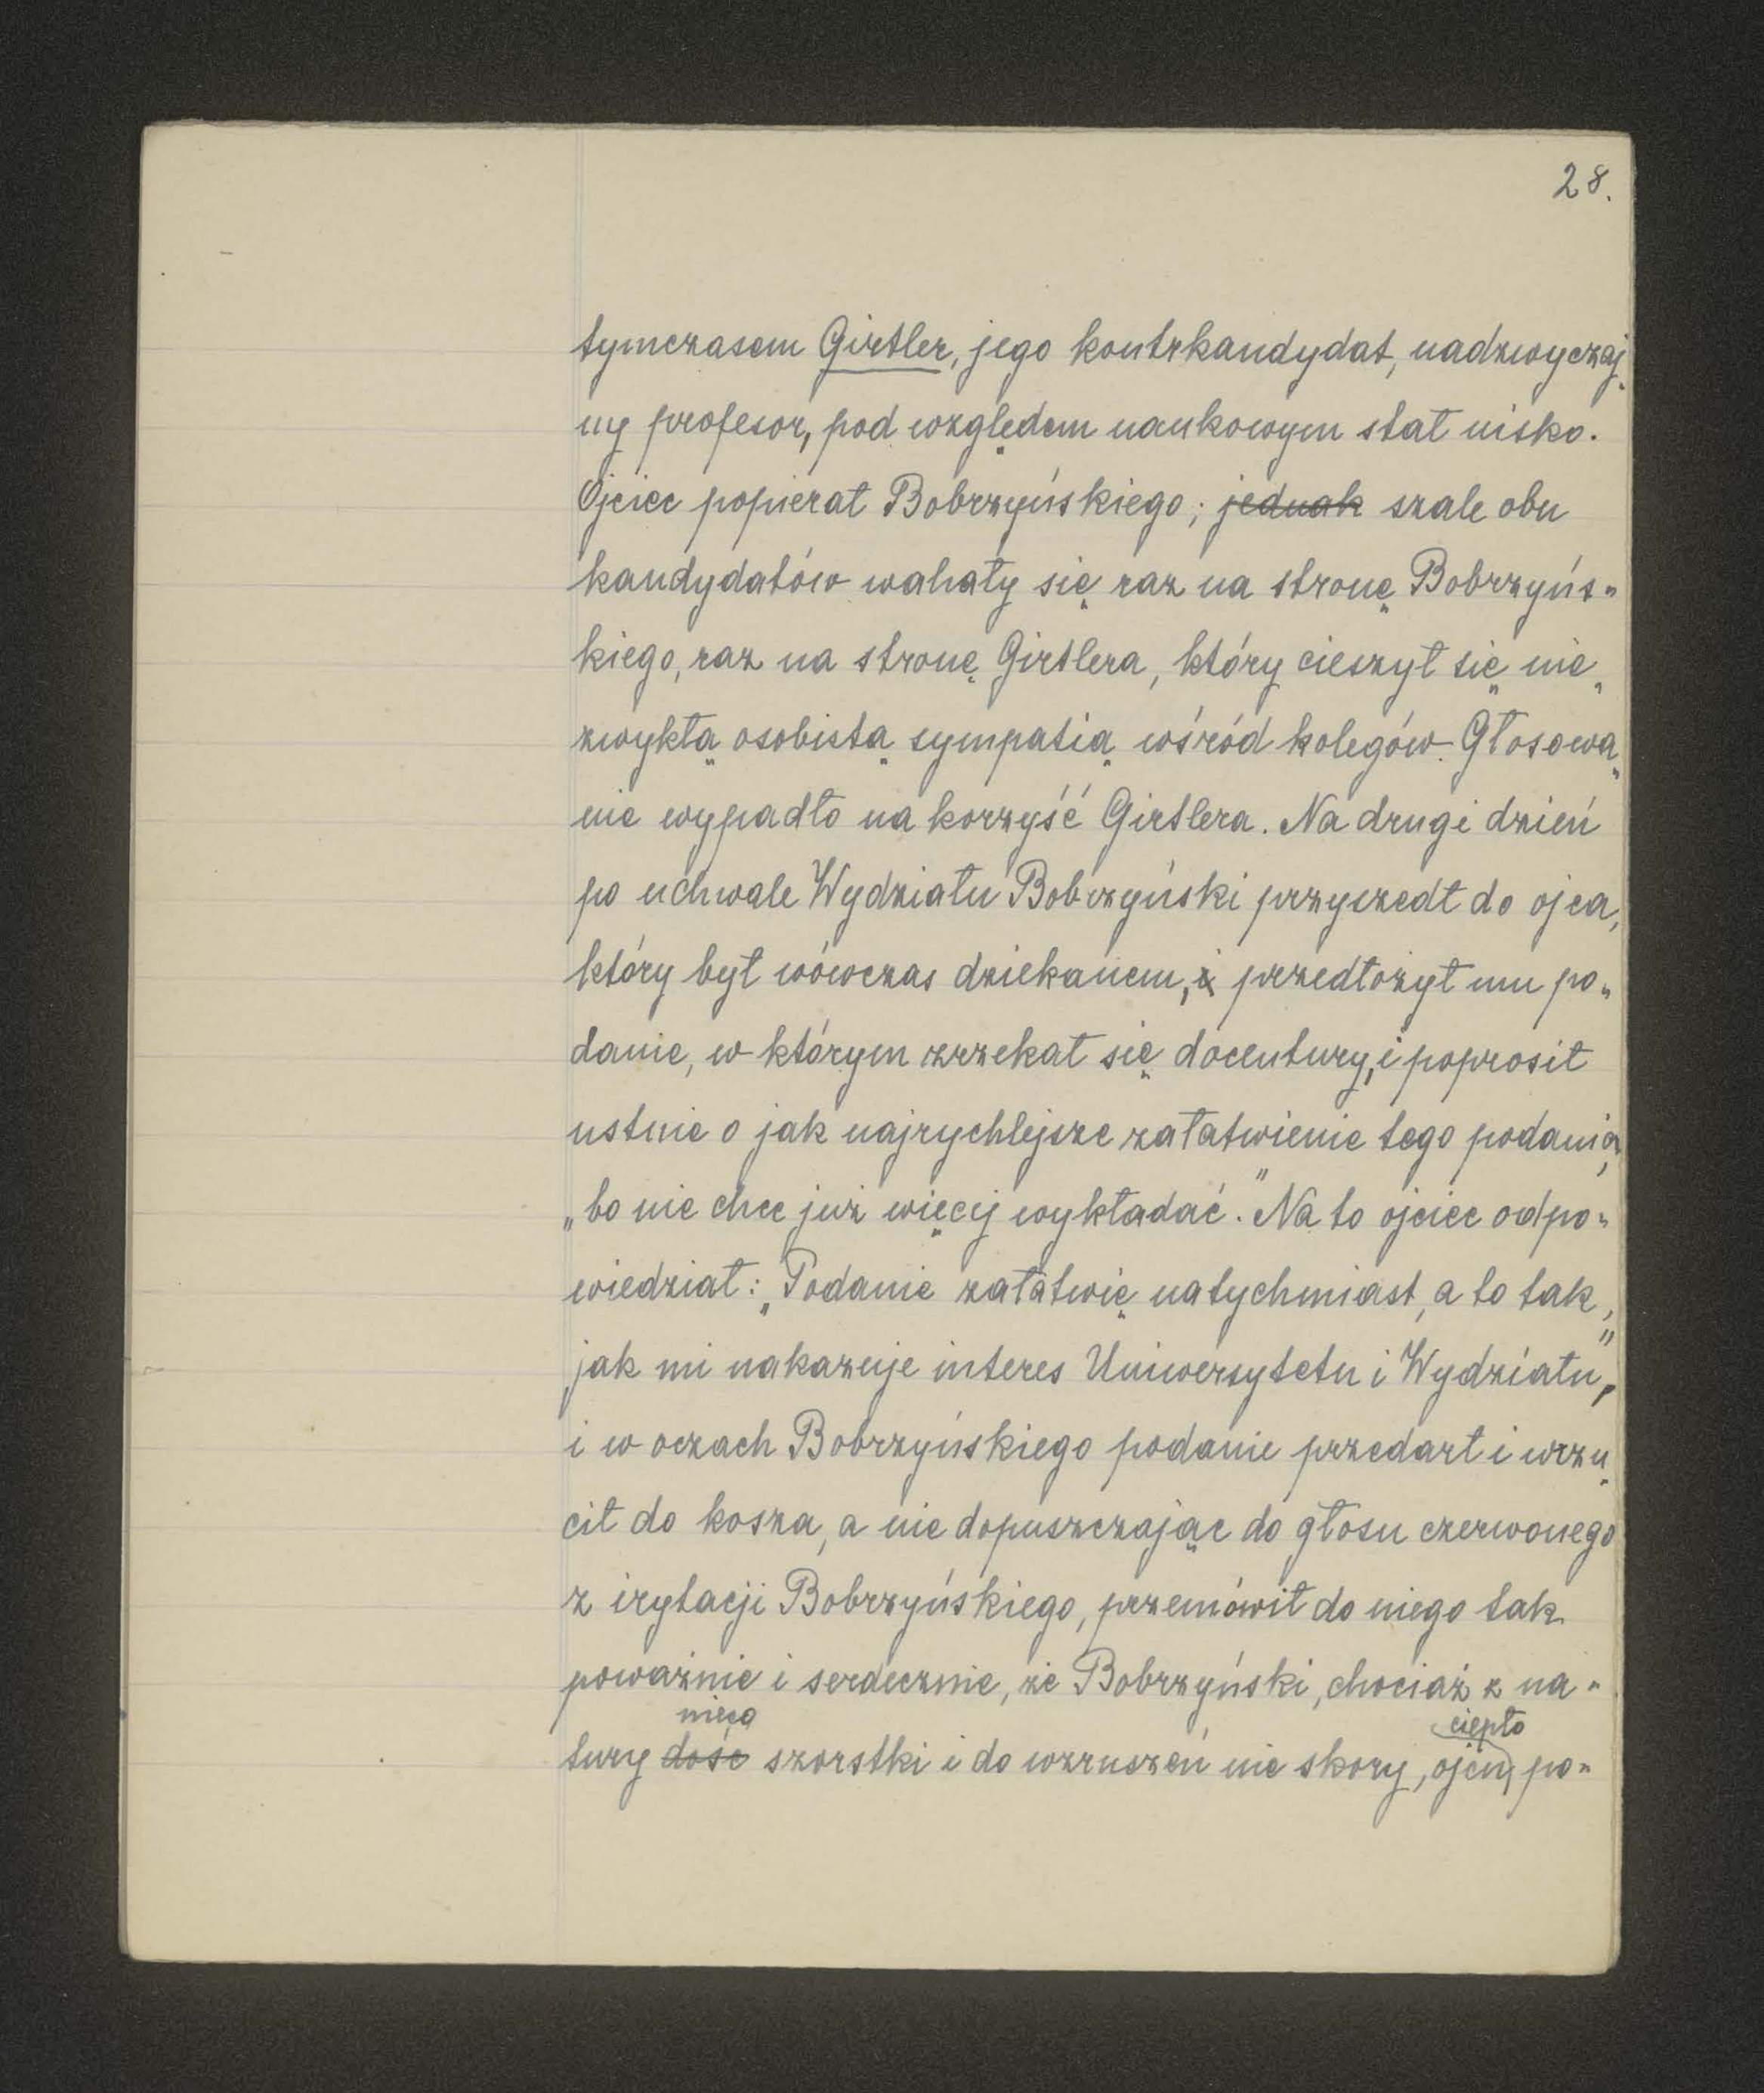 28.
tymczasem Girtler, jego kontrkandydat, nadzwyczaj„
ny profesor, pod względem naukowym stał nisko.
Ojciec popierał Bobrzyńskiego; jednak szale obu
kandydatów wahały się raz na stronę Bobrzyńs„
kiego, raz na stronę Girtlera, który cieszył się nie„
zwykłą osobistą sympatią wśród kolegów. Głosowa„
nie wypadło na korzyść Girtlera. Na drugi dzień
po uchwale Wydziału Bobrzyński przyszedł do ojca,
który był wówczas dziekanem, i przedłożył mu po„
danie, w którym zrzekał się docentury, i poprosił
ustnie o jak najrychlejsze załatwienie tego podania,
„bo nie chce już więcej wykładać." Na to ojciec odpo„
wiedział: „Podanie załatwię natychmiast, a to tak,
jak mi nakazuje interes Uniwersytetu i Wydziału",
i w oczach Bobrzyńskiego podanie przedarł i wrzu„
cił do kosza, a nie dopuszczając do głosu czerwonego
z irytacji Bobrzyńskiego, przemówił do niego tak
poważnie i serdecznie, że Bobrzyński, chociaż z na„
nieco ciepło
tury dość szorstki i do wzruszeń nie skory, ojcu po„